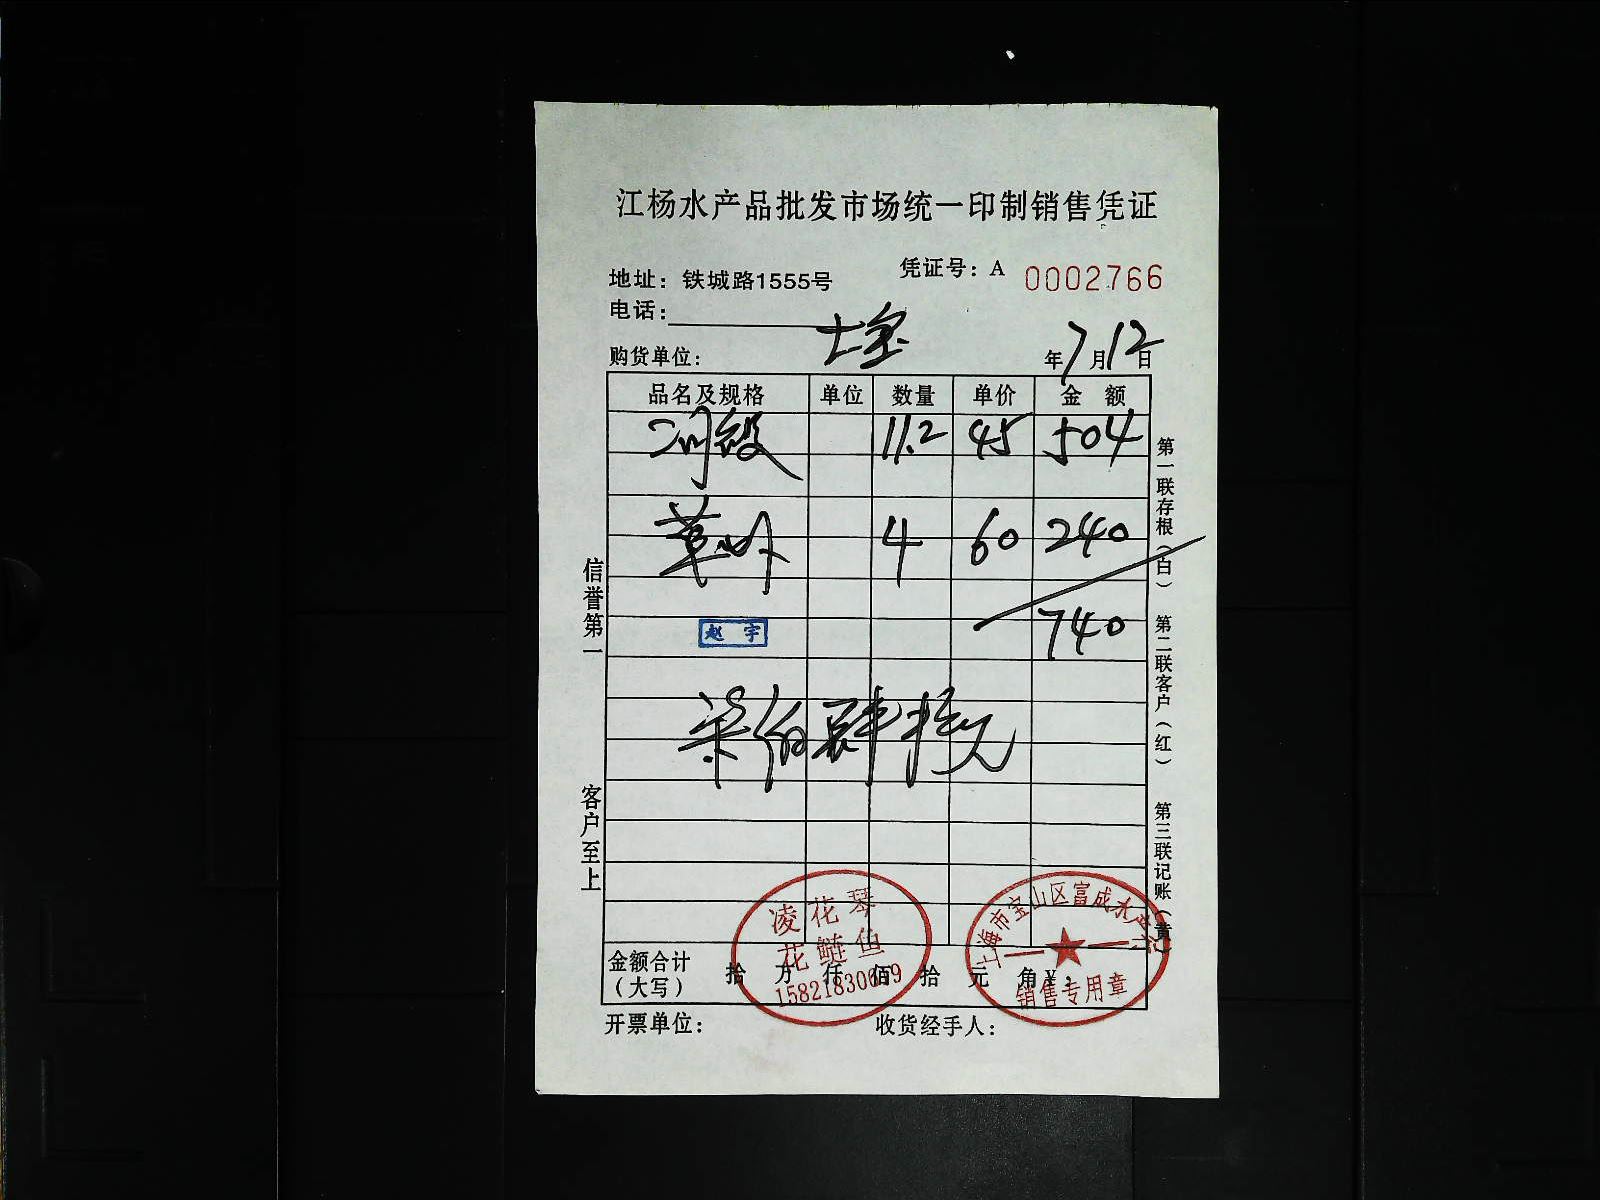 江杨水产品批发市场统一印制销售凭证
地址：铁城路1555号
凭证号：A 0002766
电话：
购货单位：
年7月12日
品名及规格 单位 数量 单价 金 额
11.2 45 504
草 4 60 240
赵 宇
740
元
信誉第一
客户至上
第一联存根（白）
第二联客户（红）
第三联记账（黄）
凌花琴
花鲢鱼
上海市宝山区富成水产
销售专用章
金额合计（大写） 拾 万 仟 佰 拾 元 角 ¥：
开票单位：
收货经手人：